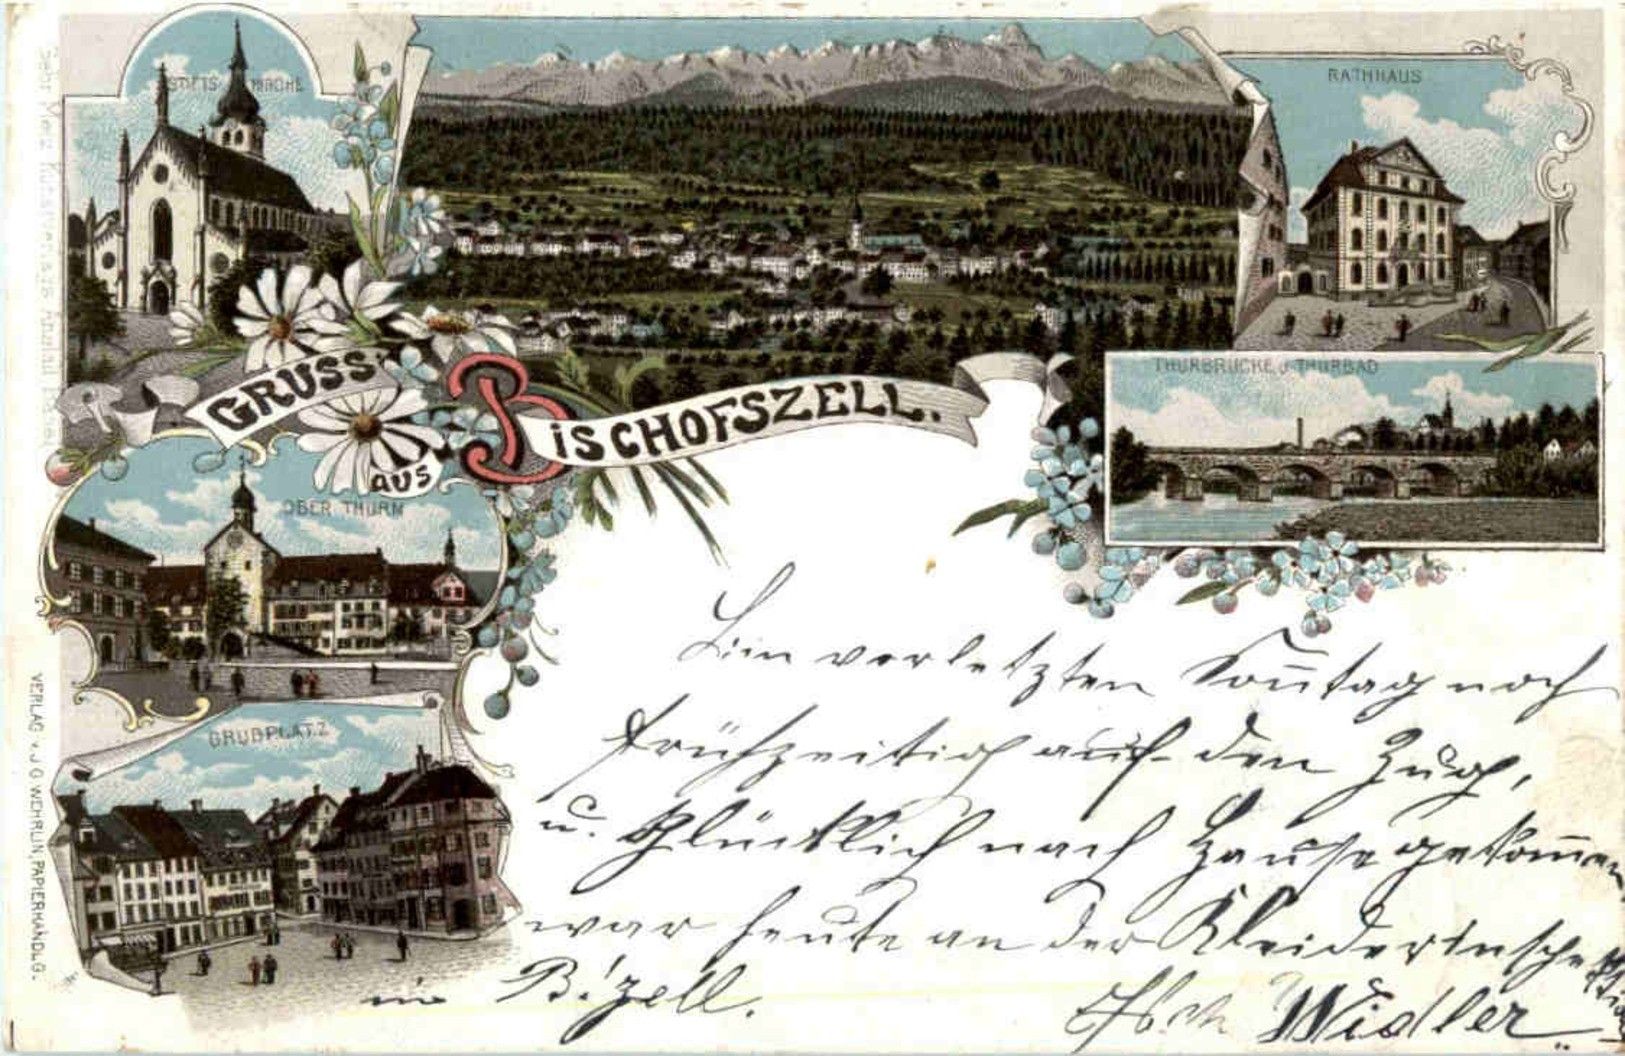 STIFTS KIRCHE
RATHHAUS
THURBRÜCKE u. THURBAD
GRUSS
AUS
BISCHOFSZELL.
OBER THURM
GRUBPLATZ
VERLAG v. J.G. WEHRLIN, PAPIERHANDLG.
Bin vorletzten Sonntag noch
frühzeitig auf den Zug,
u. glücklich nach Hause gekommen
war heute an der Kleiderinspektion
in B'zell.
Widler